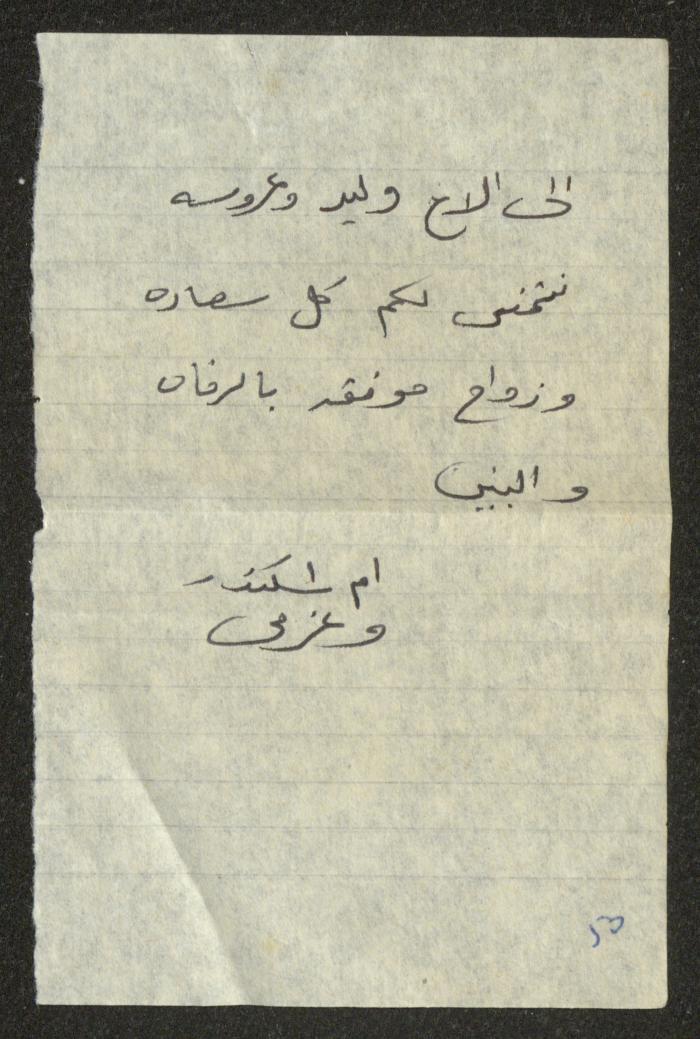 الى الاخ وليد وعروسه
نتمنى لكم كل سعاده
وزواج موفقه بالرفاه
والبنين
ام اسكندر
وعزمي